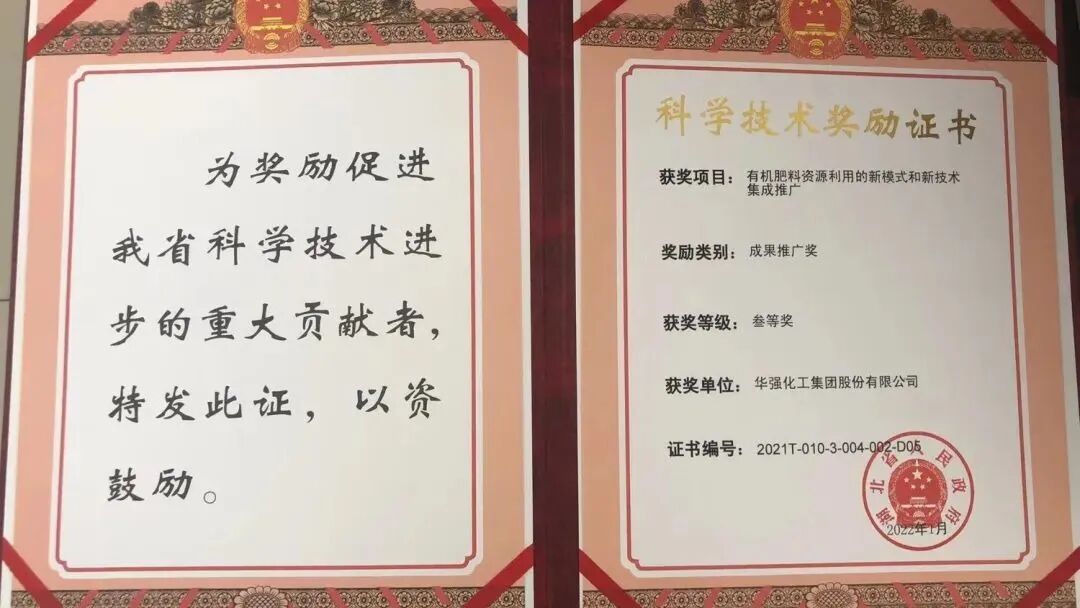 为奖励促进
我省科学技术进
步的重大贡献者，
特发此证，以资
鼓励。
科学技术奖励证书
获奖项目：有机肥料资源利用的新模式和新技术
集成推广
奖励类别：成果推广奖
获奖等级：叁等奖
获奖单位：华强化工集团股份有限公司
证书编号：2021T-010-3-004-002-D05
湖北省人民政府
2022年1月